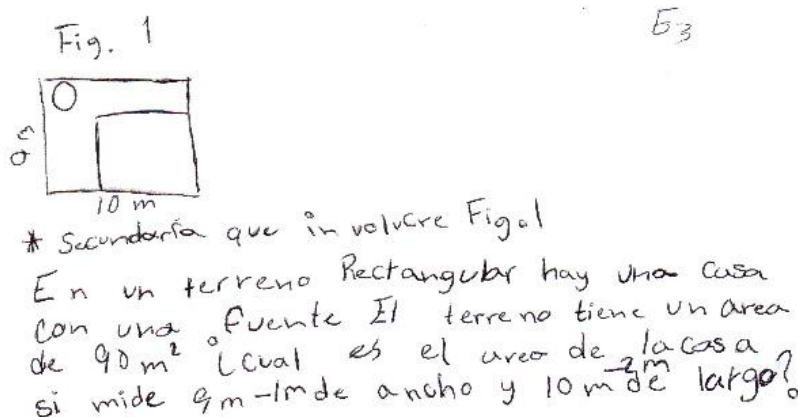 Fig. 1
E3
9 m
10 m
* Secundaria que involucre Fig.1
En un terreno Rectangular hay una casa
con una fuente El terreno tiene un area
de 90 m² ¿Cual es el area de la casa
si mide 9m-1m de ancho y 10m-2m de largo?